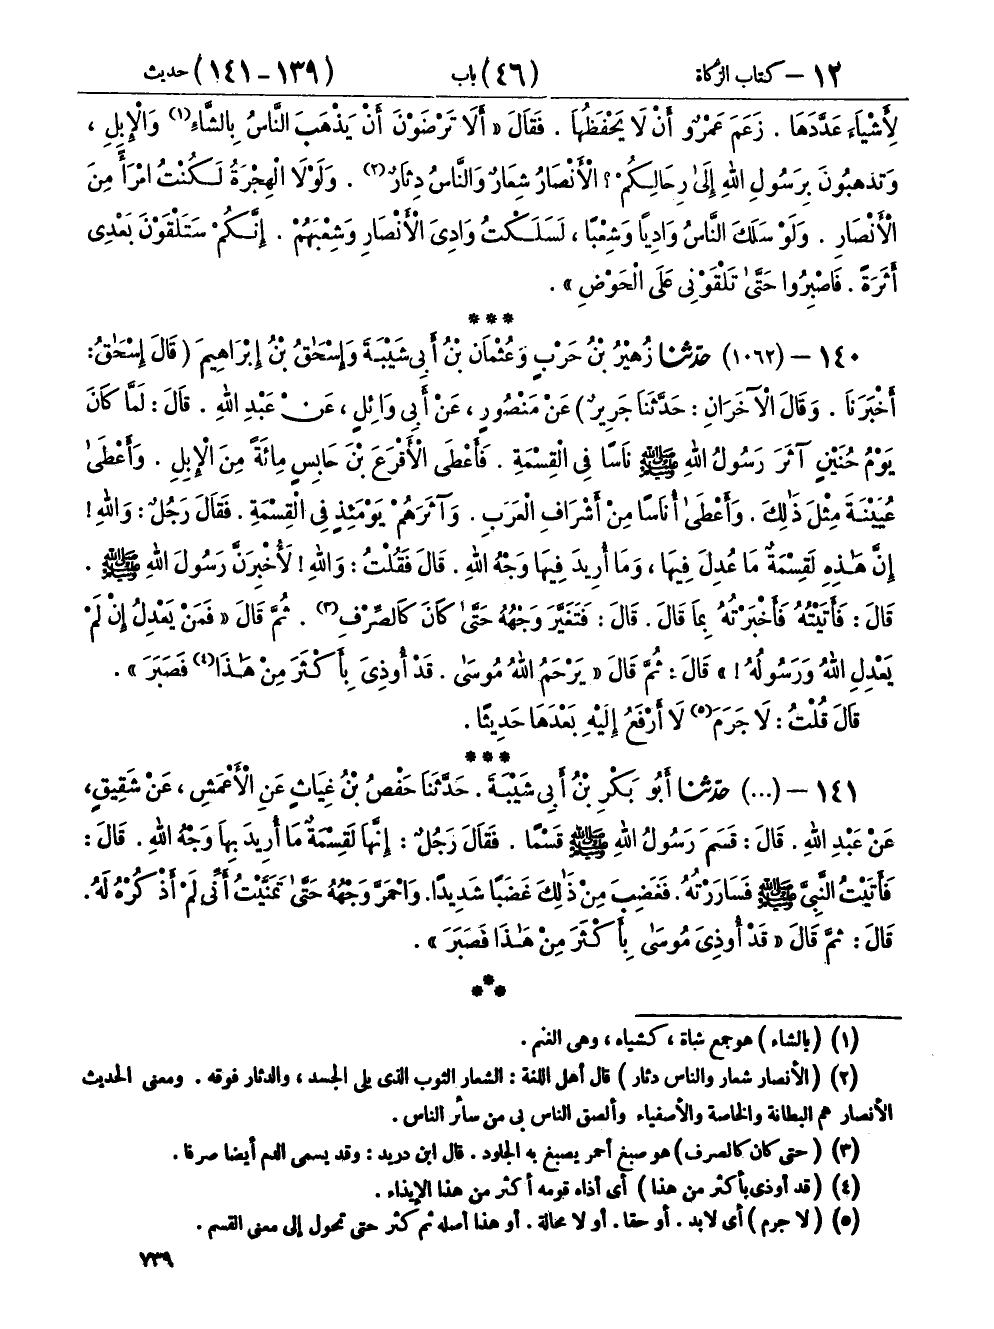 ١٢ – كتاب الزكاة (٤٦) باب (١٣٩-١٤١) حديث
لِأَشْيَاءَ عَدَّدَهَا . زَعَمَ عَمْرٌو أَنْ لَا يَحْفَظُهَا . فَقَالَ « أَلَا تَرْضَوْنَ أَنْ يَذْهَبَ النَّاسُ بِالشَّاءِ(١) وَالْإِبِلِ ،
وَتَذْهَبُونَ بِرَسُولِ اللهِ إِلَىٰ رِحَالِكُمْ ؟ الْأَنْصَارُ شِعَارٌ وَالنَّاسُ دِثَارٌ(٢) . وَلَوْلَا الْهِجْرَةُ لَكُنْتُ امْرَأً مِنَ
الْأَنْصَارِ . وَلَوْ سَلَكَ النَّاسُ وَادِيًا وَشِعْبًا ، لَسَلَكْتُ وَادِىَ الْأَنْصَارِ وَشِعْبَهُمْ . إِنَّكُمْ سَتَلْقَوْنَ بَعْدِى
أَثَرَةً . فَاصْبِرُوا حَتَّىٰ تَلْقَوْنِى عَلَى الْحَوْضِ » .
***
١٤٠ – (١٠٦٢) حدّثنا زُهَيْرُ بْنُ حَرْبٍ وَعُثْمَانُ بْنُ أَبِى شَيْبَةَ وَإِسْحَٰقُ بْنُ إِبْرَاهِيمَ ( قَالَ إِسْحَٰقُ :
أَخْبَرَنَا . وَقَالَ الْآخَرَانِ : حَدَّثَنَا جَرِيرٌ ) عَنْ مَنْصُورٍ ، عَنْ أَبِى وَائِلٍ ، عَنْ عَبْدِ اللهِ . قَالَ : لَمَّا كَانَ
يَوْمُ حُنَيْنٍ آثَرَ رَسُولُ اللهِ ﷺ نَاسًا فِى الْقِسْمَةِ . فَأَعْطَى الْأَقْرَعَ بْنَ حَابِسٍ مِائَةً مِنَ الْإِبِلِ . وَأَعْطَىٰ
عُيَيْنَةَ مِثْلَ ذَٰلِكَ . وَأَعْطَىٰ أُنَاسًا مِنْ أَشْرَافِ الْعَرَبِ . وَآثَرَهُمْ يَوْمَئِذٍ فِى الْقِسْمَةِ . فَقَالَ رَجُلٌ : وَاللهِ !
إِنَّ هَٰذِهِ لَقِسْمَةٌ مَا عُدِلَ فِيهَا ، وَمَا أُرِيدَ فِيهَا وَجْهُ اللهِ . قَالَ فَقُلْتُ : وَاللهِ ! لَأُخْبِرَنَّ رَسُولَ اللهِ ﷺ .
قَالَ : فَأَتَيْتُهُ فَأَخْبَرْتُهُ بِمَا قَالَ . قَالَ : فَتَغَيَّرَ وَجْهُهُ حَتَّىٰ كَانَ كَالصِّرْفِ(٣) . ثُمَّ قَالَ « فَمَنْ يَعْدِلُ إِنْ لَمْ
يَعْدِلِ اللهُ وَرَسُولُهُ ! » قَالَ : ثُمَّ قَالَ « يَرْحَمُ اللهُ مُوسَىٰ . قَدْ أُوذِىَ بِأَكْثَرَ مِنْ هَٰذَا(٤) فَصَبَرَ » .
قَالَ قُلْتُ : لَا جَرَمَ(٥) لَا أَرْفَعُ إِلَيْهِ بَعْدَهَا حَدِيثًا .
***
١٤١ – (...) حدّثنا أَبُو بَكْرِ بْنُ أَبِى شَيْبَةَ . حَدَّثَنَا حَفْصُ بْنُ غِيَاثٍ عَنِ الْأَعْمَشِ ، عَنْ شَقِيقٍ ،
عَنْ عَبْدِ اللهِ . قَالَ : قَسَمَ رَسُولُ اللهِ ﷺ قَسْمًا . فَقَالَ رَجُلٌ : إِنَّهَا لَقِسْمَةٌ مَا أُرِيدَ بِهَا وَجْهُ اللهِ . قَالَ :
فَأَتَيْتُ النَّبِىَّ ﷺ فَسَارَرْتُهُ . فَغَضِبَ مِنْ ذَٰلِكَ غَضَبًا شَدِيدًا . وَاحْمَرَّ وَجْهُهُ حَتَّىٰ تَمَنَّيْتُ أَنِّى لَمْ أَذْكُرْهُ لَهُ .
قَالَ : ثُمَّ قَالَ « قَدْ أُوذِىَ مُوسَىٰ بِأَكْثَرَ مِنْ هَٰذَا فَصَبَرَ » .
***
(١) ( بالشاء ) هو جمع شاة ، كشياه ، وهى الغنم .
(٢) ( الأنصار شعار والناس دثار ) قال أهل اللغة : الشعار الثوب الذى يلى الجسد ، والدثار فوقه . ومعنى الحديث
الأنصار هم البطانة والخاصة والأصفياء وألصق الناس بى من سائر الناس .
(٣) ( حتى كان كالصرف ) هو صبغ أحمر يصبغ به الجلود . قال ابن دريد : وقد يسمى الدم أيضا صرفا .
(٤) ( قد أوذى بأكثر من هذا ) أى أذاه قومه أكثر من هذا الإيذاء .
(٥) ( لا جرم ) أى لابد . أو حقا . أو لا محالة . أو هذا أصله ثم كثر حتى تحول إلى معنى القسم .
٧٣٩